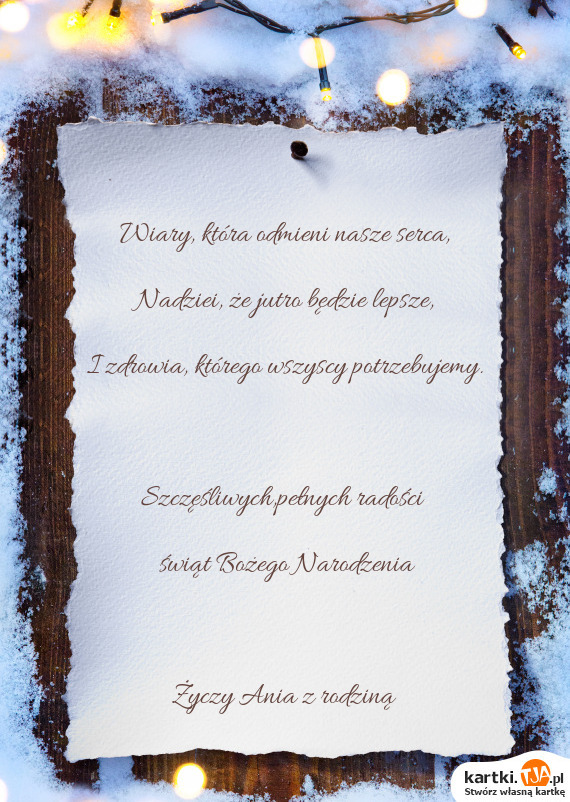 Wiary, która odmieni nasze serca,
Nadziei, że jutro będzie lepsze,
I zdrowia, którego wszyscy potrzebujemy.
Szczęśliwych,pełnych radości
świąt Bożego Narodzenia
Życzy Ania z rodziną
kartki.TJA.pl
Stwórz własną kartkę